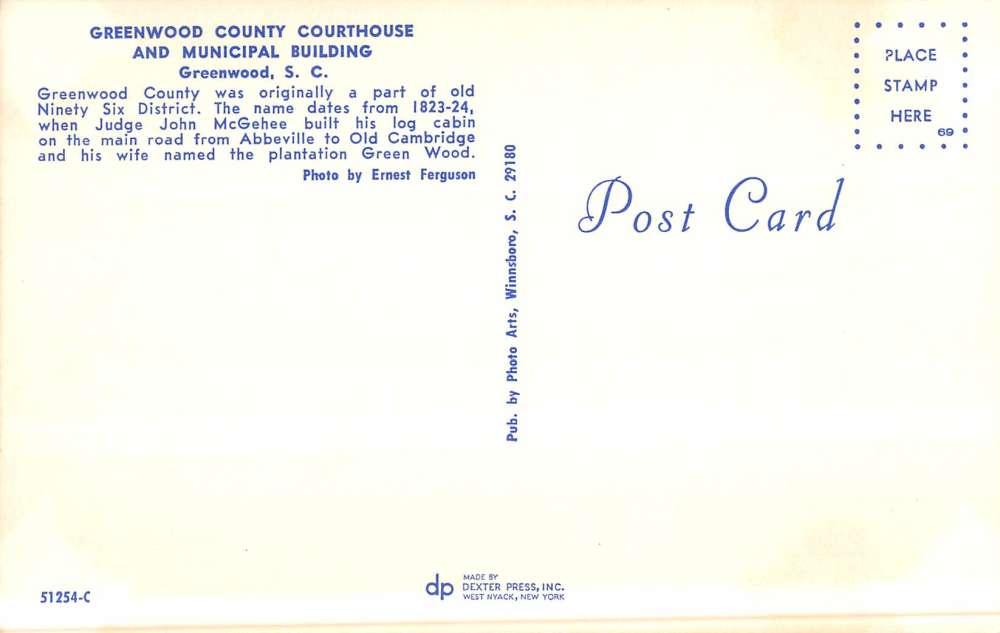 GREENWOOD COUNTY COURTHOUSE
AND MUNICIPAL BUILDING
Greenwood, S. C.
Greenwood County was originally a part of old
Ninety Six District. The name dates from 1823-24,
when Judge John McGehee built his log cabin
on the main road from Abbeville to Old Cambridge
and his wife named the plantation Green Wood.
Photo by Ernest Ferguson
Pub. by Photo Arts, Winnsboro, S. C. 29180
PLACE
STAMP
HERE
69
Post Card
51254-C
dp
MADE BY
DEXTER PRESS, INC.
WEST NYACK, NEW YORK